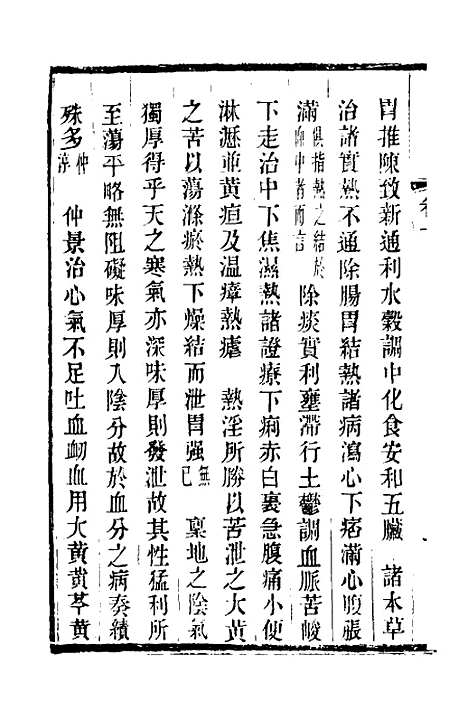 胃推陳致新通利水穀調中化食安和五臟　諸本草
治諸實熱不通除腸胃結熱諸病瀉心下痞滿心腹脹
滿俱指熱之結於血中者而言　除痰實利壅滯行土鬱調血脈苦峻
下走治中下焦濕熱諸證療下痢赤白裏急腹痛小便
淋瀝並黃疸及温瘴熱瘧　熱淫所勝以苦泄之大黃
之苦以蕩滌瘀熱下燥結而泄胃强無已　稟地之陰氣
獨厚得乎天之寒氣亦深味厚則發泄故其性猛利所
至蕩平略無阻礙味厚則入陰分故於血分之病奏績
殊多仲淳　仲景治心氣不足吐血衂血用大黃黃芩黃